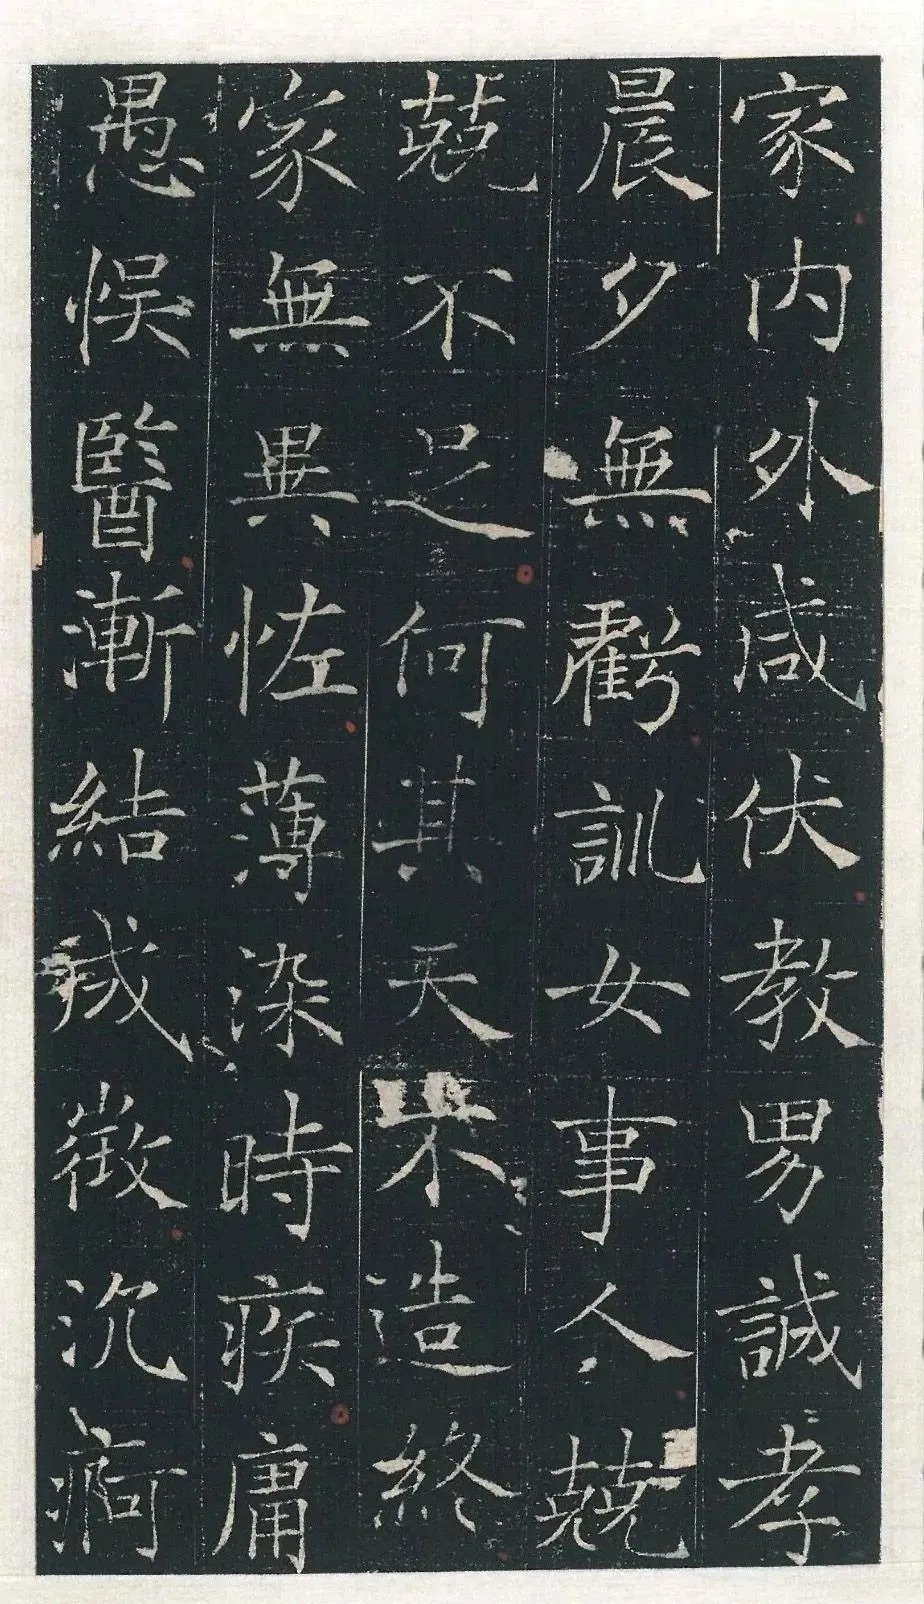 家內外咸伏教男誡孝
晨夕無虧訓女事人兢
兢不足何其天不造終
家無異恠薄染時疾庸
愚悮醫漸結徵沉痾